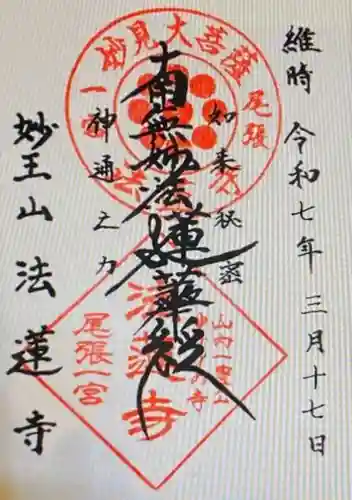 維時 令和七年 三月十七日
如来秘密
南無妙法蓮華経
神通之力
妙王山 法蓮寺
妙見大菩薩
尾張
一宮
法蓮寺
山内一豊
尾張一宮